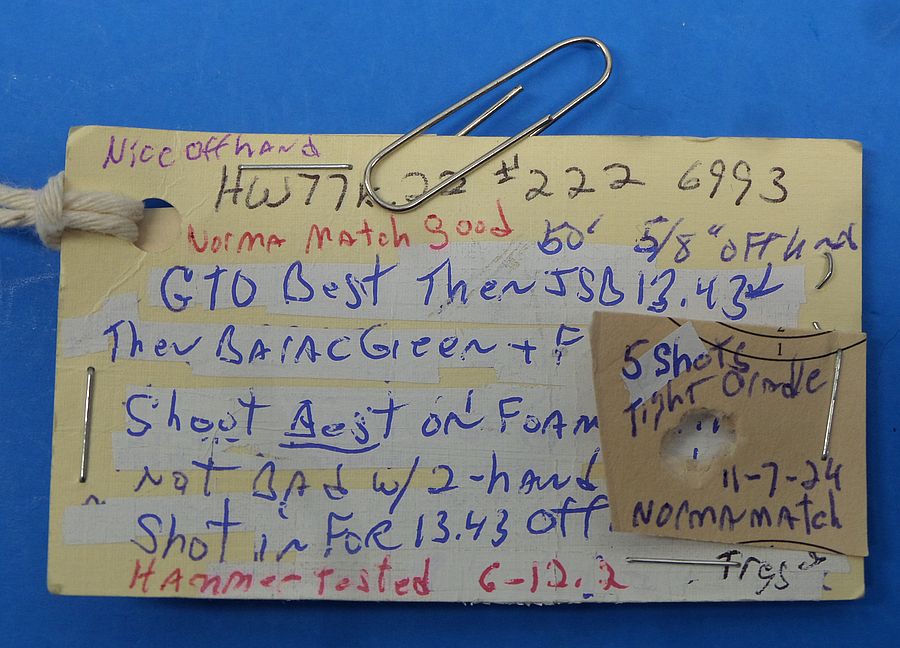 Nice offhand
HW77K .22 #222 6993
Norma Match good 50' 5/8" offhand
GTO Best Then JSB 13.43
Then BAracGreen + F
Shoot Best on Foam
not BAd w/ 2-hand
Shot in For 13.43 Off
HAmmer Tested 6-12.2
1
5 Shots
Tight
11-7-24
Norma match